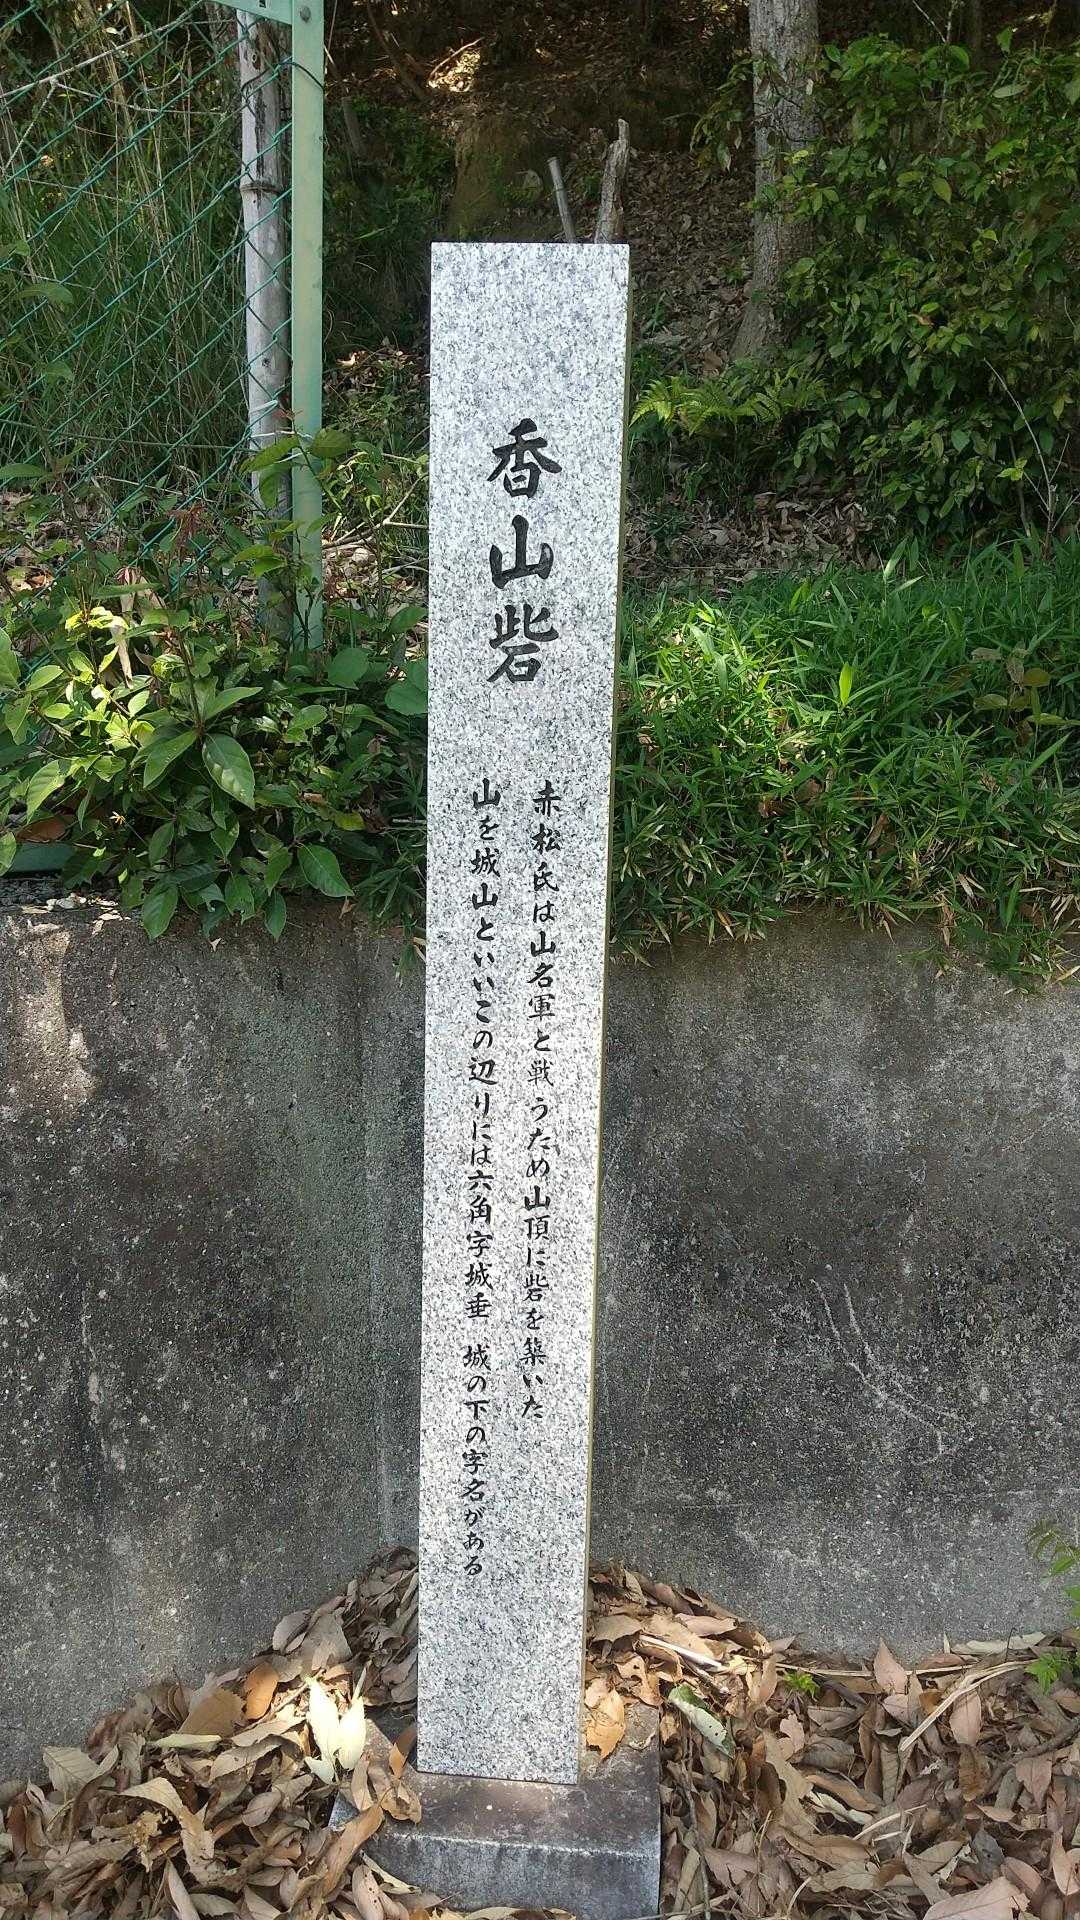 香山砦
赤松氏は山名軍と戦うため山頂に砦を築いた
山を城山といいこの辺りには六角字城垂　城の下の字名がある